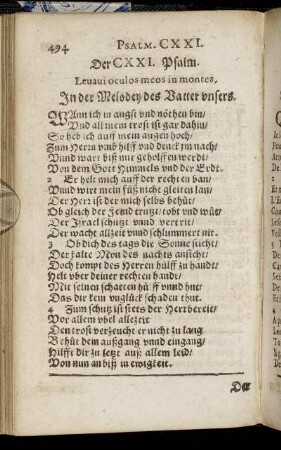 494 PSALM. CXXI.
Der CXXI. Psalm.
Levavi oculos meos in montes,
In der Melodey des Vatter vnsers.
WAnn ich in angst vnd nöthen bin/
Vnd all mein trost ist gar dahin/
So heb ich auff mein augen hoch/
Zum Herrn vmb hilff vnd denck jm nach/
Vnnd wart biß mir geholffen werdt/
Von dem Gott Himmels vnd der Erdt.
2 Er helt mich auff der rechten ban/
Vnnd wirt mein füß nicht gleiten lan/
Der Herr ist der mich selbs behüt/
Ob gleich der Feynd trutzt/ tobt vnd wüt/
Der Jsrael schutzt vnnd vertrit/
Der wacht allzeit vnnd schlummert nit.
3 Ob dich des tags die Sonne sticht/
Der kalte Mon des nachts ansicht/
Doch kompt des Herren hülff zu handt/
Helt vber deiner rechten handt/
Mit seinen schatten hüff vnnd hut/
Das dir kein vnglück schaden thut.
4 Zum schutz ist stets der Herr bereit/
Vor allem vbel allezeit
Den trost verzeucht er nicht zu lang
Behüt dein außgang vnnd eingang/
Hilfft dir zu letzt auß allem leid/
Von nun an biß in ewigkeit.
Der